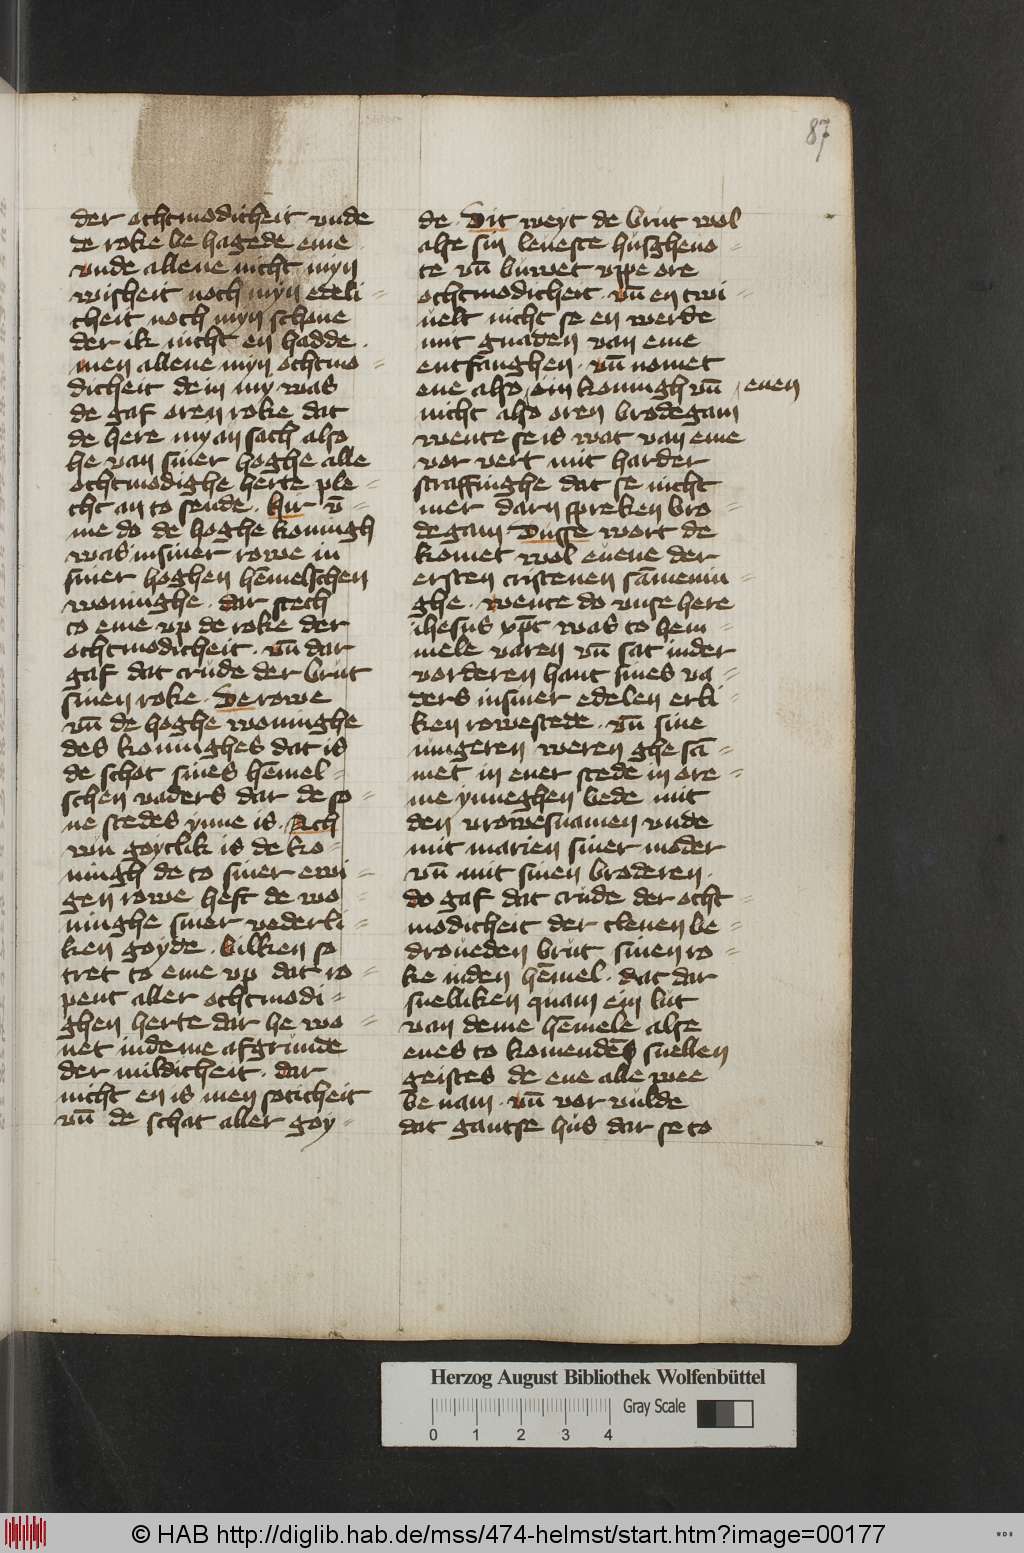 87
der othmodicheit vnde
de roke be hagede eme
vnde allene nicht myn
wisheit noch myn edeli=
cheit noch myn schone
der ik nicht en hadde .
men allene myn othmo=
dicheit de in my was
de gaf oren roke dat
de here my an sach also
he van siner hoghe alle
othmodighe herte ple=
cht an to sende . hir v̄=
me do de hoghe koningh
was in siner rowe in
siner hoghen hēmelschen
woninghe . dar stech
to eme vp de roke der
othmodicheit . vn̄ dar
gaf dat crude der brut
sinen roke . De rowe
vn̄ de hoghe woninghe
des koninghes dat is
de schot sines hēmel=
schen vaders dar de so=
ne stedes ynne is . Ach
wu goytlik is de ko=
ningh de to siner ewi=
gen rowe heft de wo=
ninghe siner vederli=
ken goyde . billken so
tret to eme vp dat ro=
pent aller othmodi=
ghen herte dar he wo=
net in deme afgrunde
der mildicheit . dar
nicht en is men soticheit
vn̄ de schat aller goy=
de . Dit weyt de brut wol
alse sin leueste huszheno=
te vn̄ buwet vppe ore
othmodicheit . vn̄ en twi=
uelt nicht se en werde
mit gnaden van eme
entfanghen . vn̄ nomet
ene also ein koningh vn̄ / euen
nicht also oren brodegam
wente se is wat van eme
vor vert mit harder
straffinghe dat se nicht
mer darn spreken bro=
degam Dusse wort de
komet wol euene der
ersten cristenen sāmenin=
ghe . wente do vnse here
ihesus xpt̄ was to hem=
mele varen vn̄ sat in der
vorderen hant sines va=
ders in siner edelen erli=
ken rowestede . vn̄ sine
iungeren weren ghe sā=
met in ener stede in ore=
me ynneghen bede mit
den vrowesnamen vnde
mit marien siner moder
vn̄ mit sinen broderen .
do gaf dat crude der otht=
modicheit der clenen be=
droueden brut sinen ro=
ke in den hēmel . dat dar
snelliken quam ein lut
van deme hēmele alse
enes to komendēs snellen
geistes de ene alle wee
be nam . vn̄ vor vulde
dat gantse hus dar se to
Herzog August Bibliothek Wolfenbüttel
0 1 2 3 4 Gray Scale
© HAB http://diglib.hab.de/mss/474-helmst/start.htm?image=00177